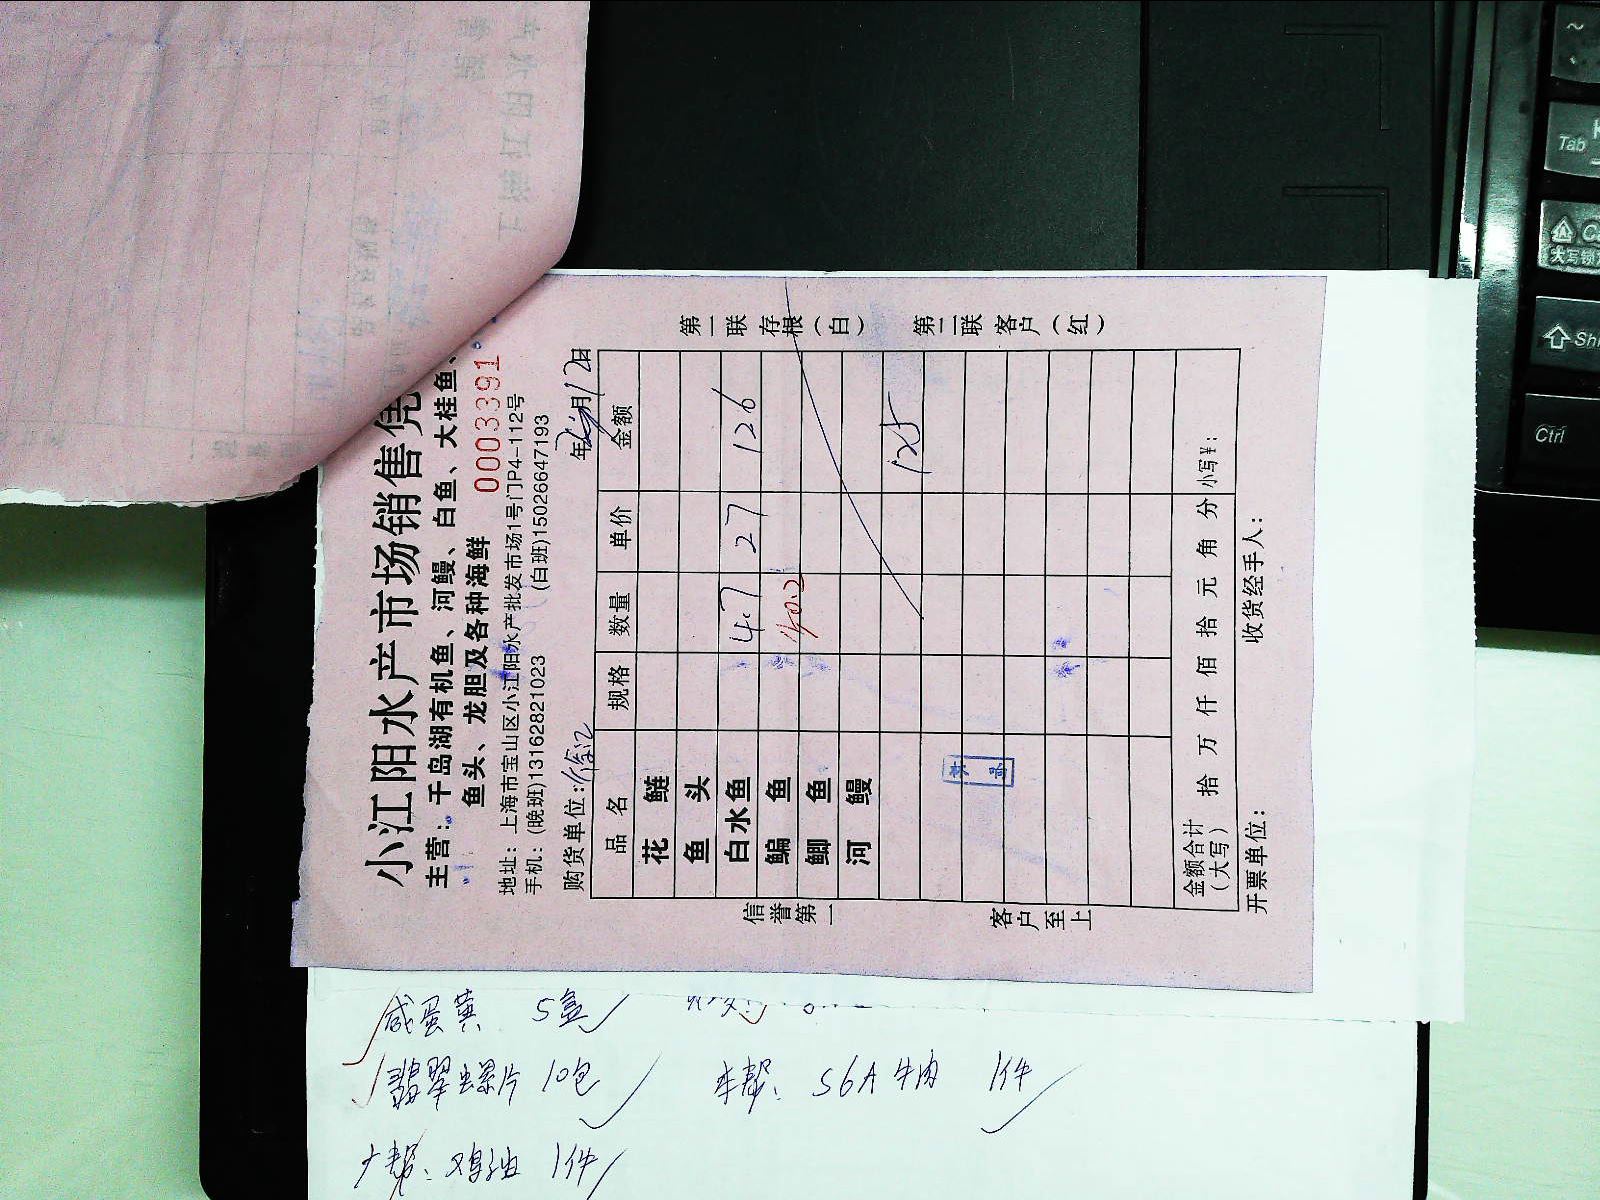 小江阳水产市场销售凭
主营：千岛湖有机鱼、河鳗、白鱼、大桂鱼、
鱼头、龙胆及各种海鲜
0003391
地址：上海市宝山区小江阳水产批发市场1号门P4-112号
手机：(晚班)13162821023 (白班)15026647193
购货单位： 年 月12日
品名 规格 数量 单价 金额
花鲢
鱼头
白水鱼 4.7 27 126
鳊鱼 40.2
鲫鱼
河鳗
125
金额合计（大写） 拾 万 仟 佰 拾 元 角 分 小写¥：
开票单位： 收货经手人：
第一联存根（白） 第二联客户（红）
信誉第一 客户至上
咸蛋黄 5盒
翡翠螺片 10包
S6A牛肉 1件
鸡油 1件
~
Tab
大写锁
Shi
Ctrl